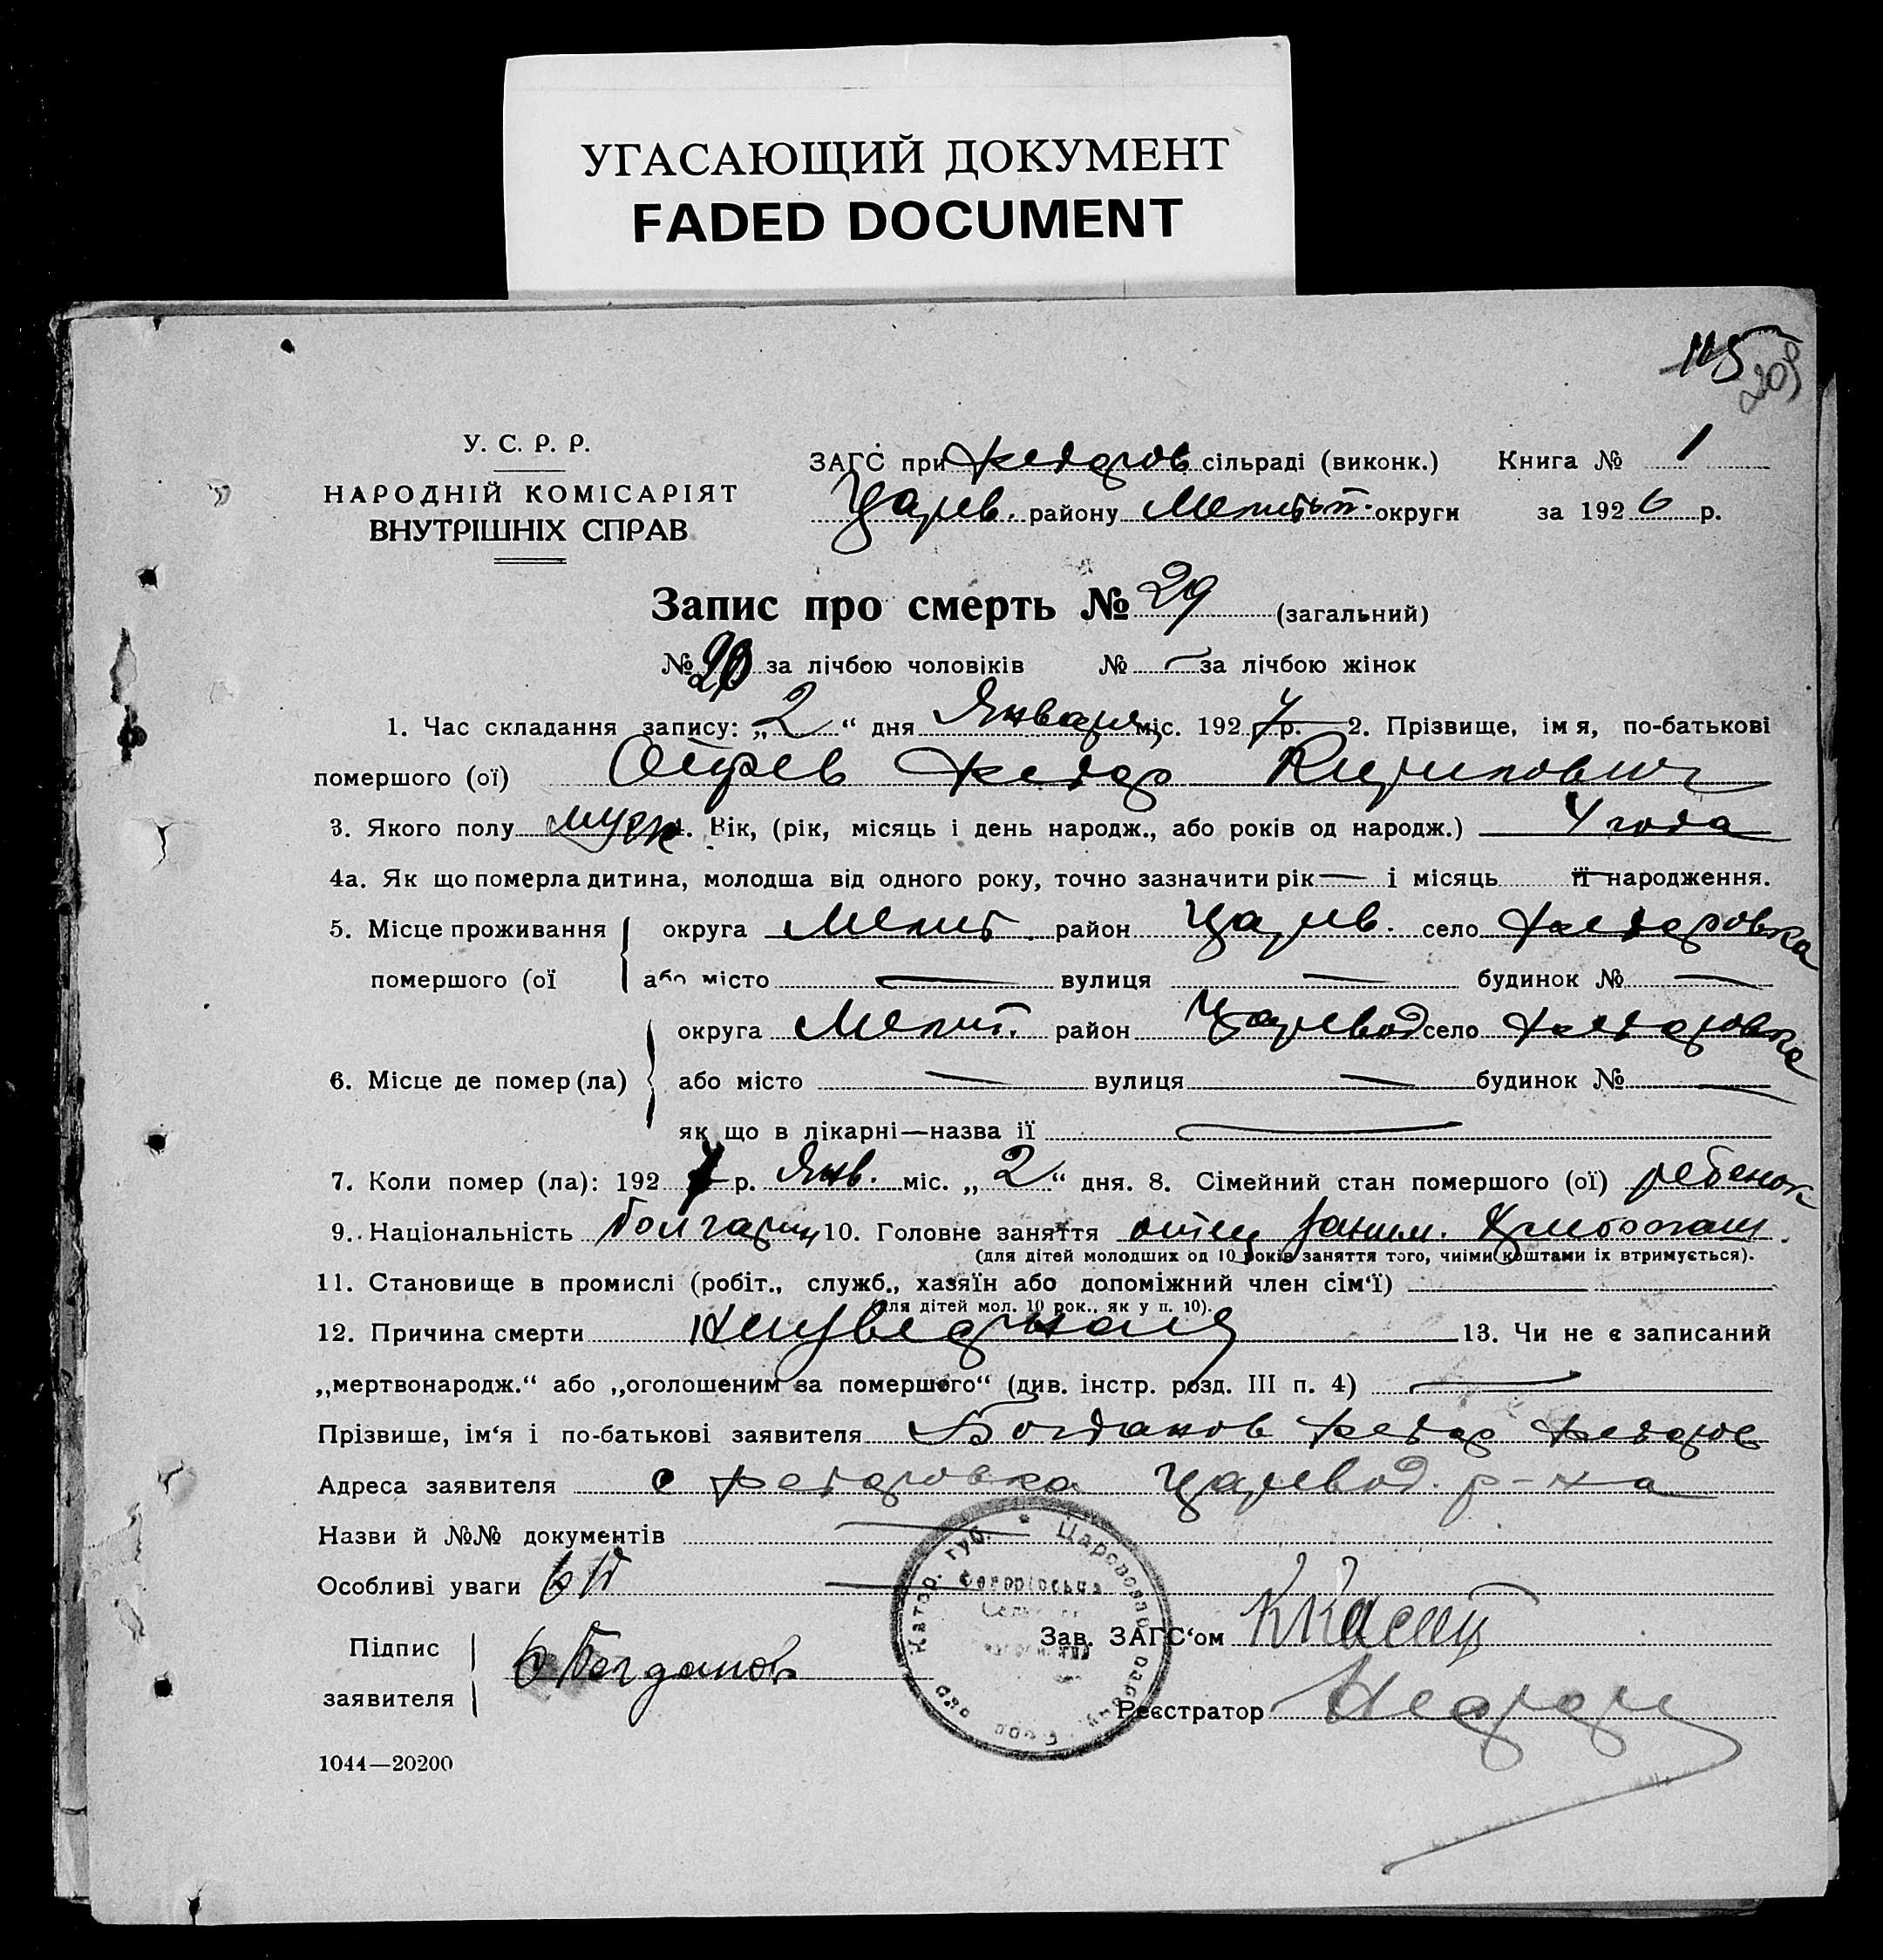 УГАСАЮЩИЙ ДОКУМЕНТ
FADED DOCUMENT
115
209
У. С. Р. Р.
НАРОДНІЙ КОМІСАРІЯТ
ВНУТРІШНІХ СПРАВ
ЗАГС при Федоров сільраді (виконк.) Книга № 1
Царев. району Мелитоп. округи за 1926 р.
Запис про смерть № 29 (загальний)
№ 20 за лічбою чоловіків № — за лічбою жінок
1. Час складання запису: „2“ дня Января міс. 1927 р. 2. Прізвище, імя, по-батькові
помершого (ої) Федор Кирилович
3. Якого полу муж 4. Вік, (рік, місяць і день народж., або років од народж.) 4 года
4а. Як що померла дитина, молодша від одного року, точно зазначити рік — і місяць її народження.
5. Місце проживання округа Мелит. район Царев. село Федоровка
помершого (ої або місто — вулиця — будинок № —
округа Мелит. район Царевод село Федоровка
6. Місце де помер (ла) або місто — вулиця — будинок № —
як що в лікарні—назва ії —
7. Коли помер (ла): 1927 р. Янв. міс. „2“ дня. 8. Сімейний стан помершого (ої) ребенок
9. Національність болгарин 10. Головне заняття отец заним. Хлебопаш.
(для дітей молодших од 10 років заняття того, чиїми коштами іх втримується).
11. Становище в промислі (робіт., служб., хазяїн або допоміжний член сім‘ї) —
(для дітей мол. 10 рок., як у п. 10).
12. Причина смерти 13. Чи не є записаний
„мертвонародж.“ або „оголошеним за помершого“ (див. інстр. розд. III п. 4) —
Прізвише, ім‘я і по-батькові заявителя Богданов Федор Федоров
Адреса заявителя с Федоровка Царевод. р-на
Назви й №№ документів —
Особливі уваги —
Підпис
заявителя Богданов
Зав. ЗАГС‘ом
Реєстратор
1044—20200